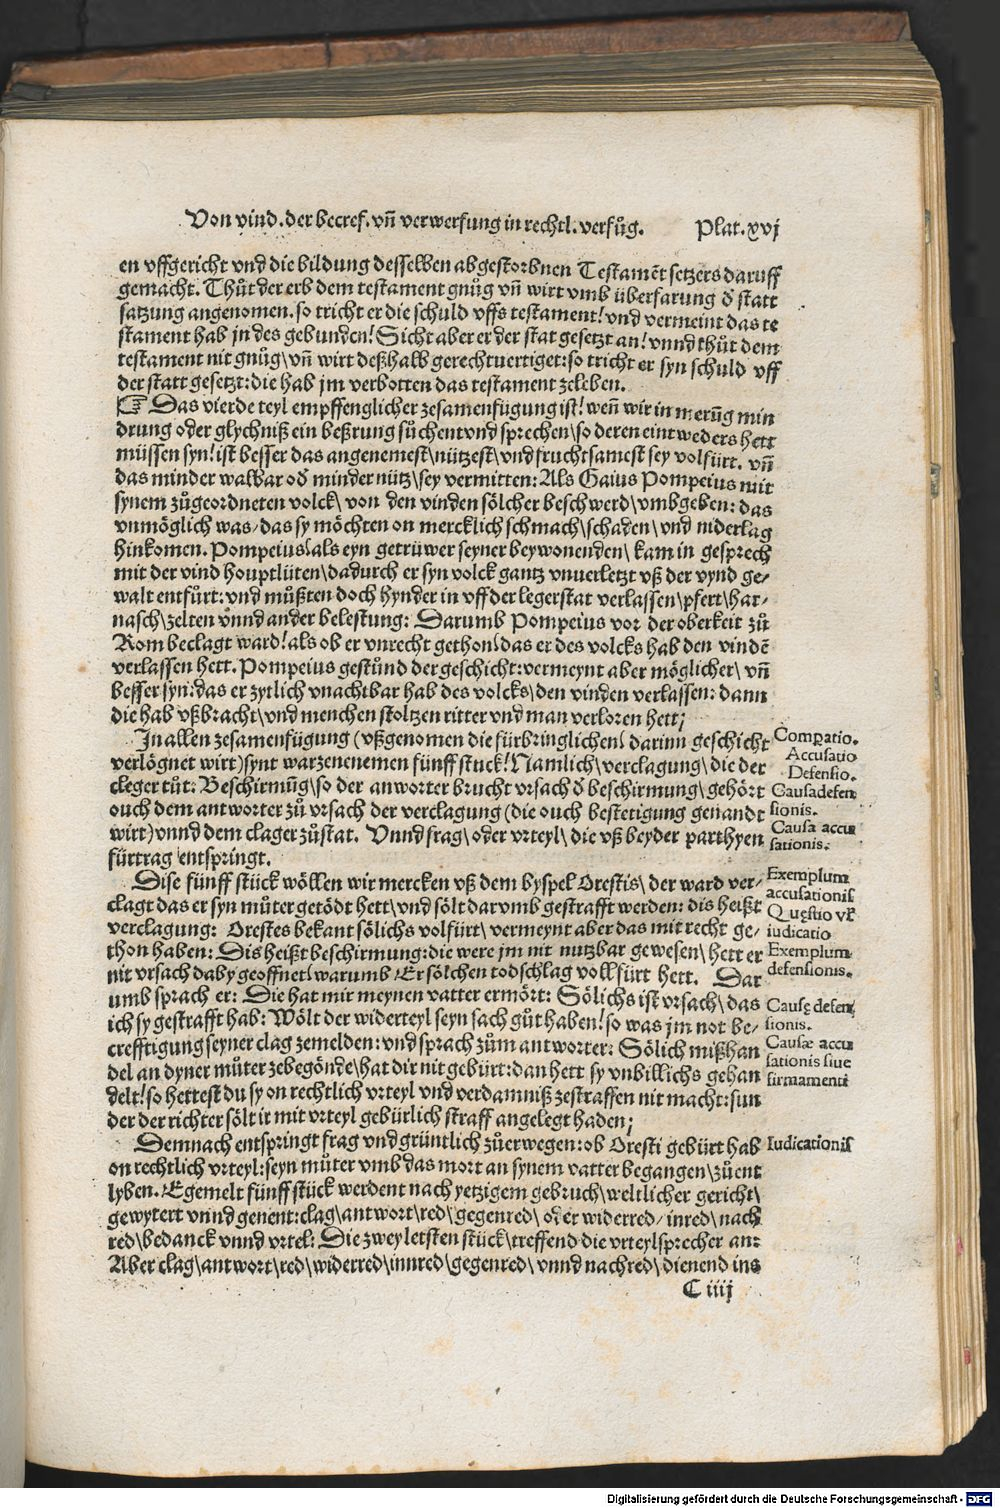 Von vind. der becref. vñ verwerfung in rechtl. verfůg. Plat. xvj
en vffgericht vnd die bildung desselben abgestorbnen Testamēt setzers daruff
gemacht. Thůt der erb dem testament gnůg vñ wirt vmb überfarung ð statt
satzung angenomen. so tricht er die schuld vffs testament/ vnd vermeint das te
stament hab jn des gebunden/ Sicht aber er der stat gesetzt an/ vnnd thůt dem
testament nit gnůg\ vñ wirt deßhalb gerechtuertiget: so tricht er syn schuld vff
der statt gesetzt: die hab jm verbotten das testament zeleben.
☞ Das vierde teyl empffenglicher zesamenfügung ist/ weñ wir in merũg min
drung oder glychniß ein beßrung sůchent vnd sprechen\ so deren eintweders hett
müssen syn/ ist besser das angenemest\ nützest\ vnd fruchtsamest sey volfürt. vñ
das minder walbar oð minder nütz\ sey vermitten: Als Gaius Pompeius mit
synem zůgeordneten volck\ von den vinden sölcher beschwerd\ vmbgeben: das
vnmöglich was/ das sy möchten on mercklich schmach\ schaden\ vnd niderlag
hinkomen. Pompeius/ als eyn getrüwer seyner beywonenden\ kam in gesprech
mit der vind houptlüten\ dadurch er syn volck gantz vnuerletzt vß der vynd ge/
walt entfürt: vnd můßten doch hynder in vff der legerstat verlassen\ pfert\ har/
nasch\ zelten vnnd ander belestung: Darumb Pompeius vor der oberkeit zů
Rom beclagt ward/ als ob er vnrecht gethon/ das er des volcks hab den vindē
verlassen hett. Pompeius gestůnd der geschicht: vermeynt aber möglicher\ vñ
besser syn: das er zytlich vnachtbar hab des volcks\ den vinden verlassen: dann
die hab vßbracht\ vnd menchen stoltzen ritter vnd man verloren hett;
In allen zesamenfügung (vßgenomen die fürbringlichen/ darinn geschicht
verlögnet wirt) synt warzenenemen fünff stuck/ Namlich\ verclagung\ die der
cleger tůt: Beschirmũg\ so der anworter brucht vrsach ð beschirmung\ gehört
ouch dem antworter zů vrsach der verclagung (die ouch bestetigung genandt
wirt) vnnd dem clager zůstat. Vnnd frag\ oder vrteyl\ die vß beyder parthyen
fürtrag entspringt.
Comparatio.
Accusatio
Defensio.
Causa defen
sionis.
Causa accu
sationis.
Dise fünff stück wöllen wir mercken vß dem byspel Orestis\ der ward ver/
clagt das er syn můter getödt hett\ vnd sölt darvmb gestrafft werden: dis heißt
verclagung: Orestes bekant sölichs volfürt\ vermeynt aber das mit recht ge/
thon haben: Dis heißt beschirmung: die were jm nit nutzbar gewesen\ hett er
nit vrsach daby geoffnet/ warumb Er sölchen todschlag vollfürt hett. Dar
umb sprach er: Die hat mir meynen vatter ermört: Sölichs ist vrsach\ das
ich sy gestrafft hab: Wölt der widerteyl seyn sach gůt haben/ so was jm not be/
crefftigung seyner clag zemelden: vnd sprach zům antworter: Sölich mißhan
del an dyner můter zebegönde\ hat dir nit gebürt: dan hett sy vnbillichs gehan
delt/ so hettest du sy on rechtlich vrteyl vnd verdamniß zestraffen nit macht: sun
der der richter sölt ir mit vrteyl gebürlich straff angelegt haden;
Exemplum
accusationis
Quęstio vl
iudicatio
Exemplum
defensionis.
Causę defen
sionis.
Causæ accu
sationis siue
firmamenti
Demnach entspringt frag vnd grüntlich zůerwegen: ob Oresti gebürt hab
on rechtlich vrteyl: seyn můter vmb das mort an synem vatter begangen\ zůent
lyben. Egemelt fünff stück werdent nach yetzigem gebruch\ weltlicher gericht\
gewytert vnnd genent: clag\ antwort\ red\ gegenred\ oder widerred/ inred\ nach
red\ bedanck vnnd vrtel: Die zwey letsten stück\ treffend die vrteylsprecher an:
Aber clag\ antwort\ red\ widerred\ innred\ gegenred\ vnnd nachred\ dienend ins
Iudicationis
C iiij
Digitalisierung gefördert durch die Deutsche Forschungsgemeinschaft - DFG